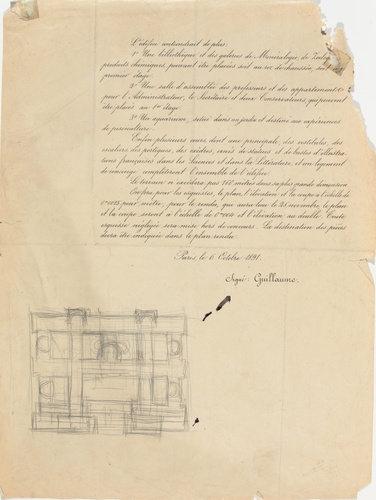 L'édifice contiendrait de plus:
1° Une bibliothèque et des galeries de Minéralogie, de Zoologie
produits chimiques, pouvant être placées soit au rez-de-chaussée, soit
premier étage.
2° Une salle d'assemblée des professeurs et des appartements
pour l'Administrateur, le Secrétaire et deux Conservateurs, qui peuvent
être placés au 1er étage.
3° Un aquarium, situé dans un jardin et destiné aux expériences
de pisciculture.
Enfin plusieurs cours, dont une principale, des vestibules, des
escaliers, des portiques, des exèdres, ornés de statues et de bustes d'illustra-
tions françaises dans les Sciences et dans la Littérature, et un logement
de concierge complèteront l'ensemble de l'édifice.
Le terrain n'excèdera pas 160 mètres dans sa plus grande dimension
On fera, pour les esquisses, le plan, l'élévation et la coupe à l'échelle de
pour mètre; pour le rendu, qui aura lieu le 25 novembre, le plan
et la coupe seront à l'échelle de et l'élévation au double. Toute
esquisse négligée sera mise hors de concours. La destination des pièces
devra être indiquée dans le plan rendu.
Paris le 6 Octobre 1891.
Signé: Guillaume.